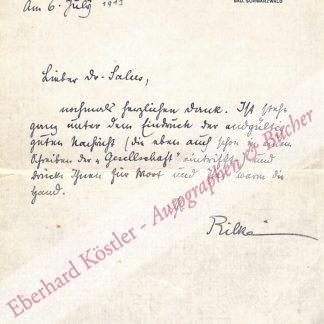 BAD. SCHWARZWALD
Am 6. July 1913
Lieber Dr. Salus,
nochmals herzlichen Dank. Ich stehe
ganz unter dem Eindruck der endgültig
guten Nachricht (die eben auch schon in einem
Schreiben der „Gesellschaft“ eintrifft) und
drücke Ihnen für Wort und That warm die
Hand.
Rilke
Eberhard Köstler - Autographen & Bücher